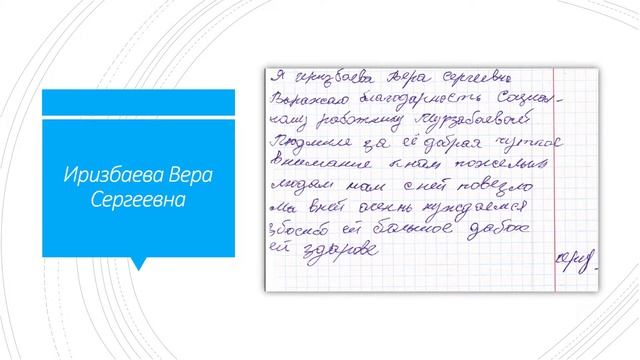 Иризбаева Вера
Сергеевна
Я иризбаева Вера Сергеевна
Выражаю благодарность Социаль-
ному работнику Мурзабаевой
Людмиле за её добрая чуткое
внимание к нам пожелым
людям нам с ней повезло
Мы в ней очень нуждаемся
ей большое
ей здоровье